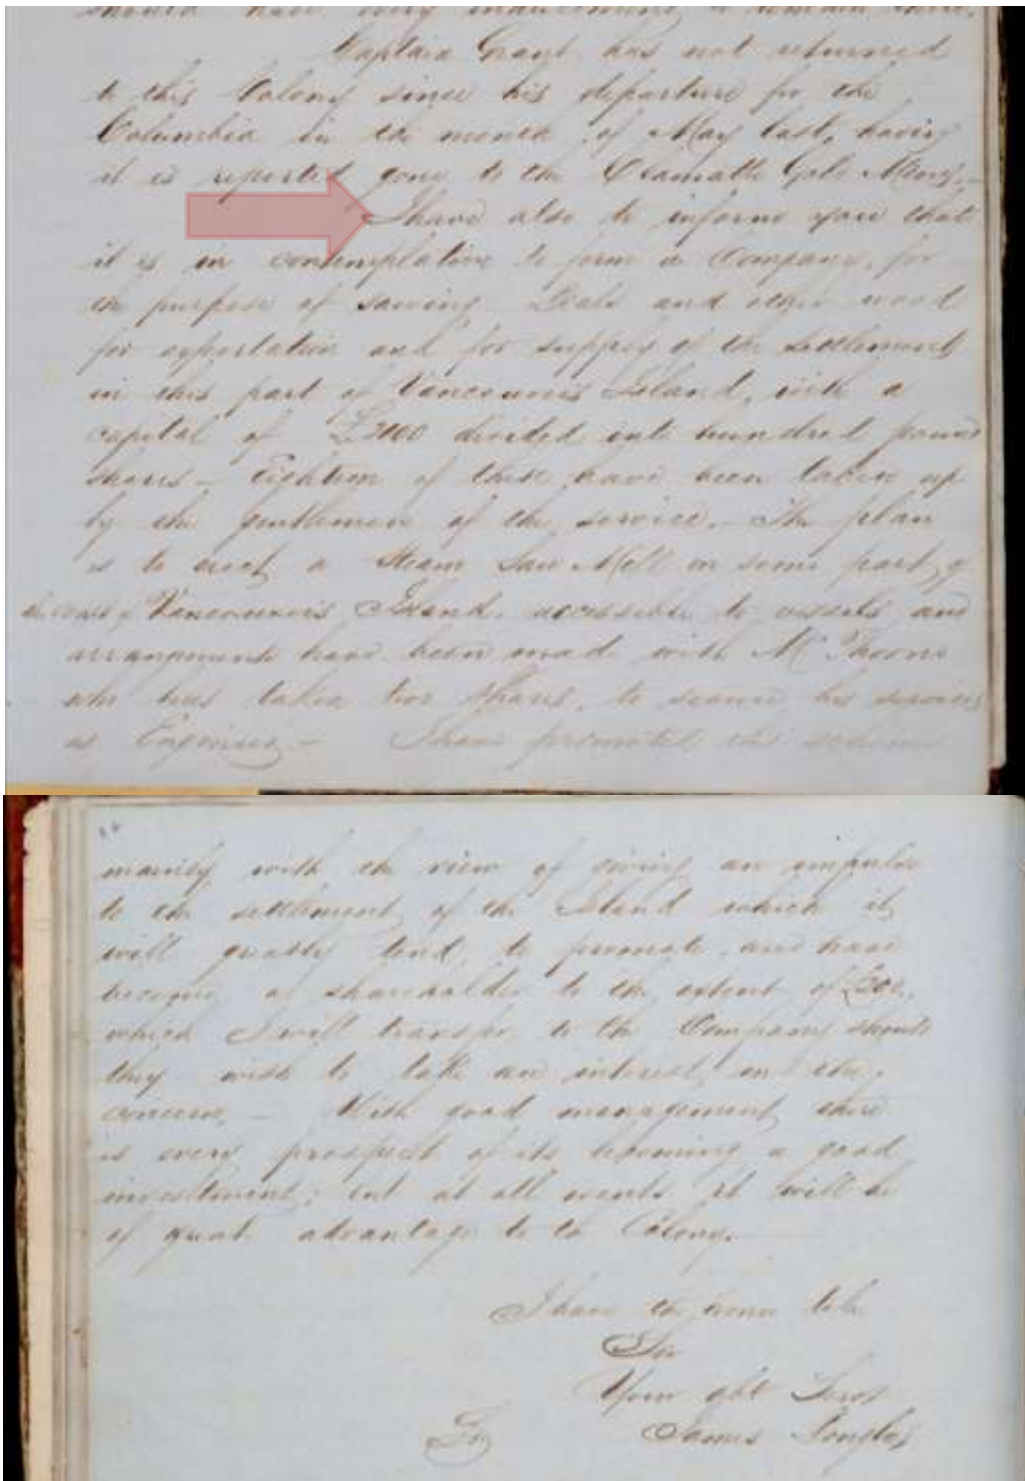 should have every inducement to remain there.
Captain Grant has not returned
to this Colony since his departure for the
Columbia in the month of May last, having
it is reported gone to the Clamatte Gold Mines,—
I have also to inform you that
it is in contemplation to form a Company, for
the purpose of sawing Deals and other wood
for exportation and for supply of the settlements
in this part of Vancouver's Island, with a
capital of divided into hundred pound
shares — Eighteen of these have been taken up
by the gentlemen of the service. — The plan
is to erect a Steam Saw Mill on some part of
the coast of Vancouver's Island, accessible to vessels and
arrangements have been made with Mr
who has taken two shares, to secure his services
as Engineer — I have promoted this scheme
mainly with the view of giving an impulse
to the settlement of the Island which it
will greatly tend, to promote, and have
become a shareholder to the extent of £200.
which I will transfer to the Company should
they wish to take an interest in the
concern, — With good management, there
is every prospect of its becoming a good
investment; but at all events it will be
of great advantage to the Colony.
I have the honor to be
Sir
Your obt Servt
James Douglas